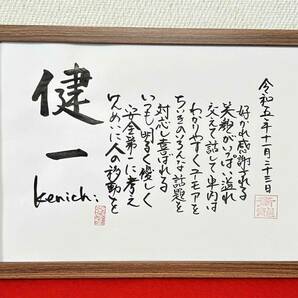 健一
kenichi
けんめいに人の移動を
安全第一に考え
いつも明るく優しく
対応し喜ばれる
ちいきのいろんな話題を
わかりやすくユーモアを
交えて話して車内は
笑顔がいっぱい溢れ
好かれ感謝される
令和五年十一月二十三日